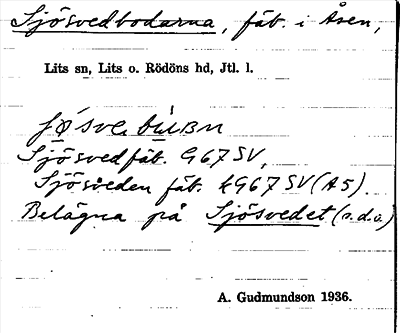 Sjösvedbodarna, fäb. i Åsen,
Lits sn, Lits o. Rödöns hd, Jtl. l.
Sjösvedfäb. G67SV,
Sjösveden fäb. LG67SV(A5).
Belägna på Sjösvedet (s.d.o.)
A. Gudmundson 1936.